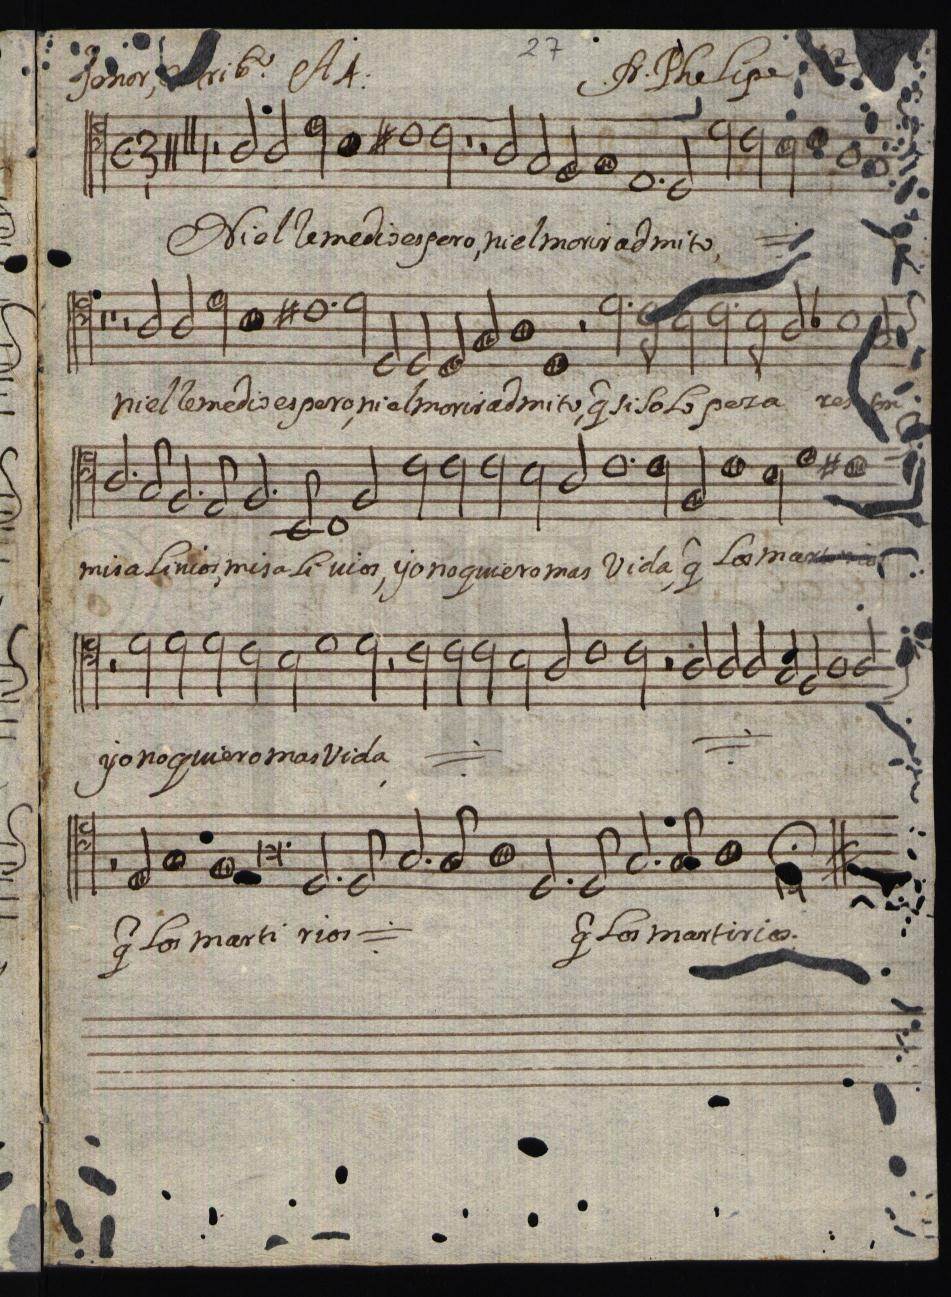 A 4. 27 fr. Phelipe
Ni el remedio espero, ni el morir admito,
ni el remedio espero, ni el morir admito, q̂ si solo
mis alivios, mis alivios, yo no quiero mas Vida, q̂ los
yo no quiero mas Vida
q̂ los martirios q̂ los martirios.